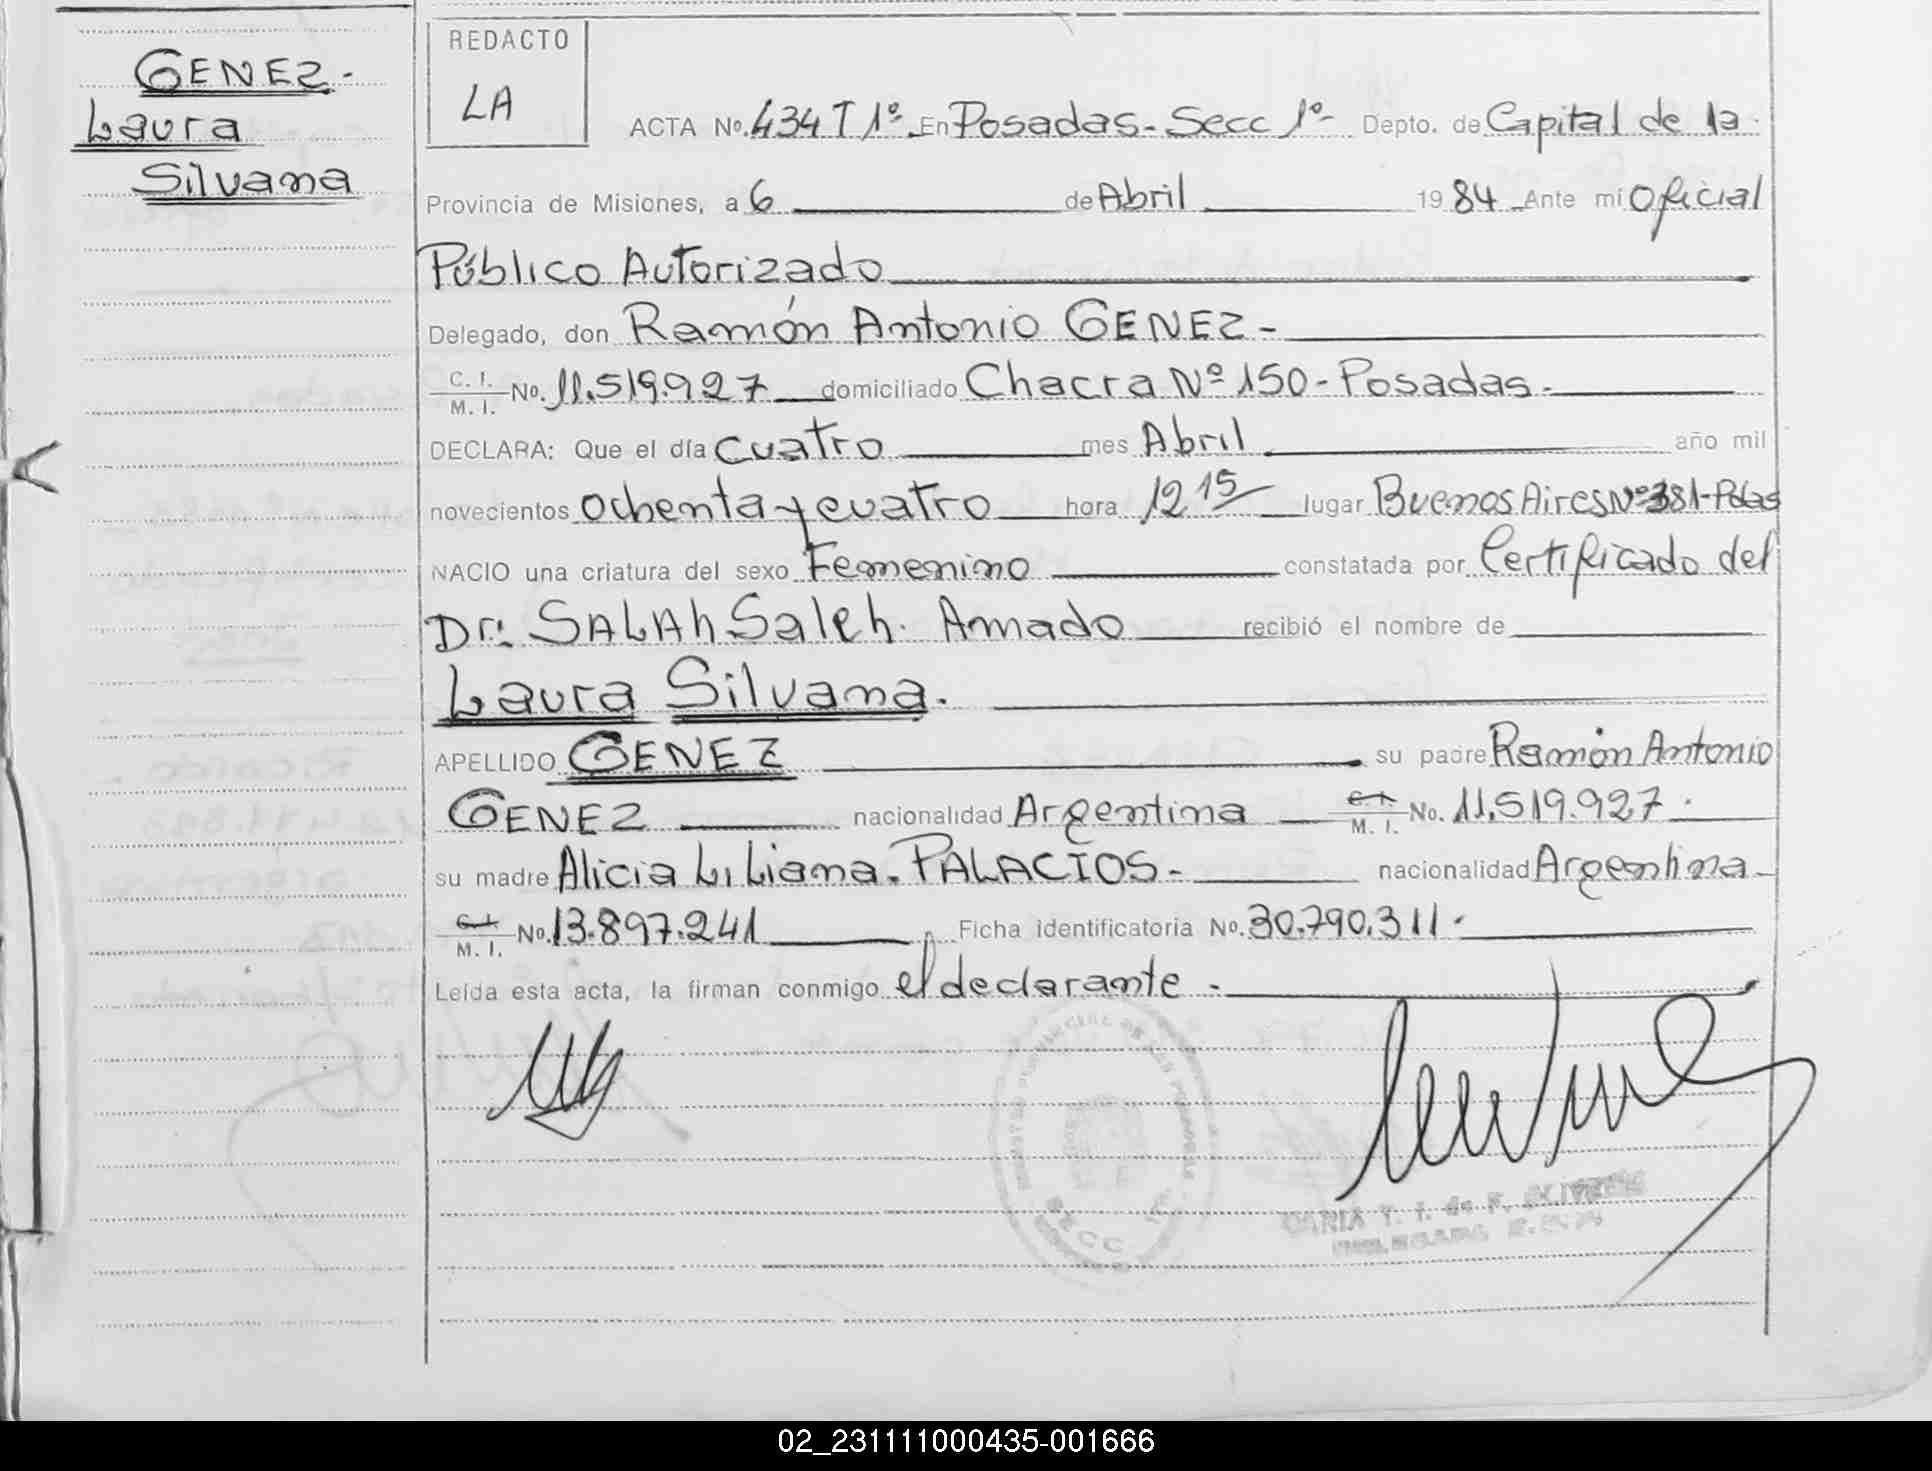 GENEZ-
Laura
Silvana
REDACTO
LA
ACTA No. 434 T 1º En Posadas - Secc 1º- Depto. de Capital de la
Provincia de Misiones, a 6 de Abril 1984 Ante mi Oficial
Público Autorizado
Delegado, don Ramón Antonio GENEZ -
C. I. M. I. No. 11.519.927 domiciliado Chacra Nº 150 - Posadas.
DECLARA: Que el día cuatro mes Abril año mil
novecientos ochenta y cuatro hora 12 15 lugar Buenos Aires Nº 381 - Pdas
NACIO una criatura del sexo Femenino constatada por Certificado del
Dr: SALAh Saleh. Amado recibió el nombre de
Laura Silvana.
APELLIDO GENEZ su padre Ramón Antonio
GENEZ nacionalidad Argentina C. I. M. I. No. 11.519.927.
su madre Alicia Liliana. PALACIOS - nacionalidad Argentina
C. I. M. I. No. 13.897.241 Ficha identificatoria No. 30.790.311.
Leída esta acta, la firman conmigo el declarante -
SECC
02_231111000435-001666